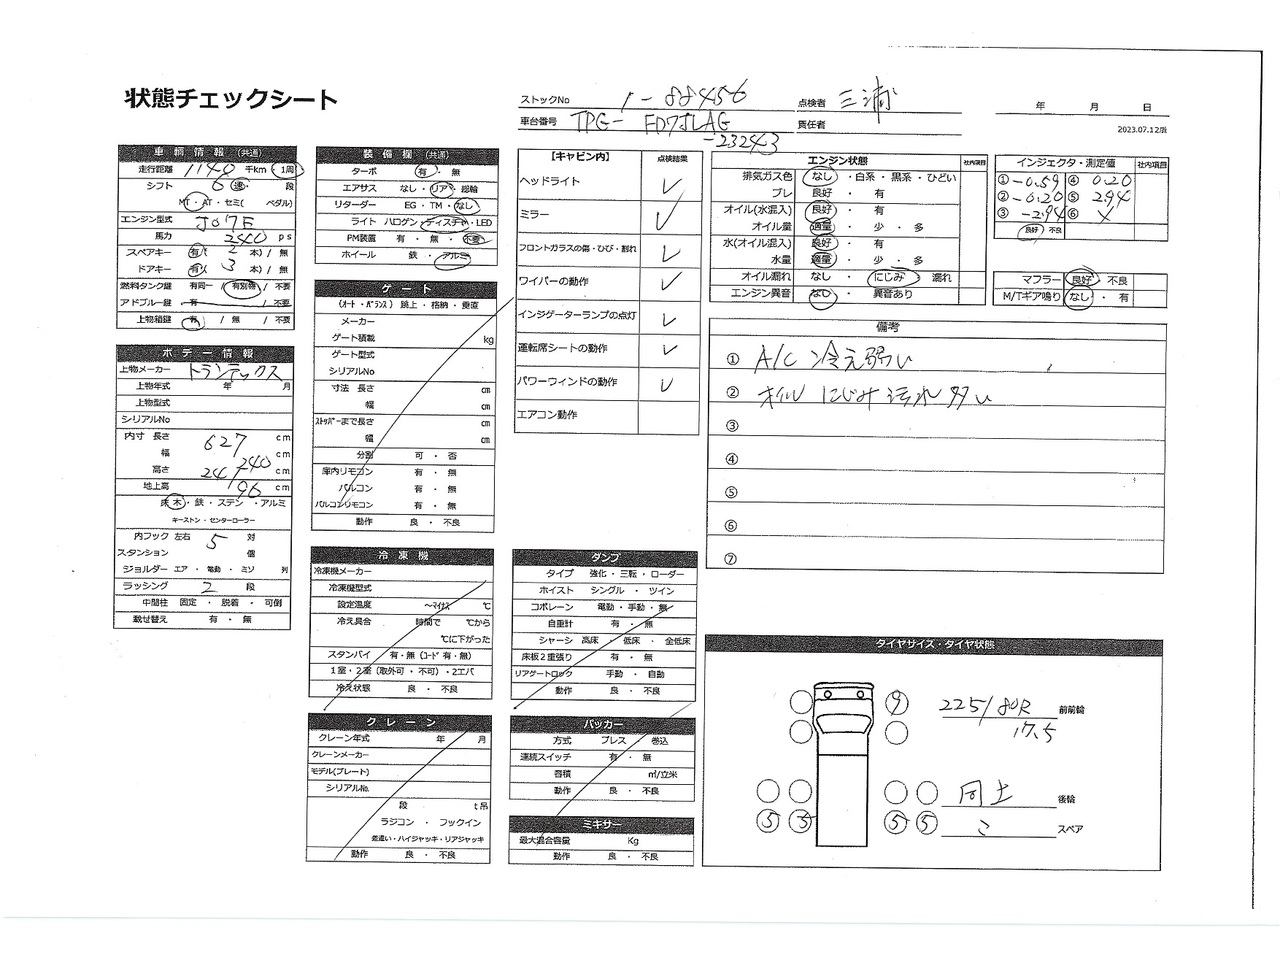 状態チェックシート
ストックNo 1-88456
点検者 三浦
年 月 日
車台番号 TPG-FD7JLAG-23243
責任者
2023.07.12版
車輌情報 (共通)
走行距離 1140 千km・1周
シフト 6 速・ 段
MT・AT・セミ( ペダル)
エンジン型式 J07E
馬力 ps
スペアキー 有( 2 本) / 無
ドアキー 有( 3 本) / 無
燃料タンク鍵 有同一 / 有別物 / 不要
アドブルー鍵 有 / 不要
上物箱鍵 有 / 無 / 不要
ボデー情報
上物メーカー トランテックス
上物年式 年 月
上物型式
シリアルNo
内寸 長さ 627 cm
幅 240 cm
高さ 247 cm
地上高 96 cm
床 木・鉄・ステン・アルミ
キーストン・センターローラー
内フック 左右 5 対
スタンション 個
ジョルダー エア・電動・ミゾ 列
ラッシング 2 段
中間柱 固定・脱着・可倒
載せ替え 有・無
装備欄 (共通)
ターボ 有・無
エアサス なし・リア・総輪
リターダー EG・TM・なし
ライト ハロゲン・ディスチャ・LED
PM装置 有・無・不要
ホイール 鉄・アルミ
ゲート
(オート・バランス) 跳上・格納・垂直
メーカー
ゲート積載 kg
ゲート型式
シリアルNo
寸法 長さ cm
幅 cm
ストッパーまで長さ cm
幅 cm
分割 可・否
庫内リモコン 有・無
バルコン 有・無
バルコンリモコン 有・無
動作 良・不良
冷凍機
冷凍機メーカー
冷凍機型式
設定温度 ～マイナス ℃
冷え具合 時間で ℃から
℃に下がった
スタンバイ 有・無 (コード 有・無)
1室・2室 (取外可・不可)・2エバ
冷え状態 良・不良
クレーン
クレーン年式 年 月
クレーンメーカー
モデル(プレート)
シリアルNo.
段 t吊
ラジコン・フックイン
差違い・ハイジャッキ・リアジャッキ
動作 良・不良
【キャビン内】 点検結果
ヘッドライト ✓
ミラー ✓
フロントガラスの傷・ひび・割れ ✓
ワイパーの動作 ✓
インジゲーターランプの点灯 ✓
運転席シートの動作 ✓
パワーウィンドの動作 ✓
エアコン動作
ダンプ
タイプ 強化・三転・ローダー
ホイスト シングル・ツイン
コボレーン 電動・手動・無
自重計 有・無
シャーシ 高床・低床・全低床
床板2重張り 有・無
リアゲートロック 手動・自動
動作 良・不良
パッカー
方式 プレス・巻込
連続スイッチ 有・無
容積 ㎥/立米
動作 良・不良
ミキサー
最大混合容量 Kg
動作 良・不良
エンジン状態 社内項目
排気ガス色 なし・白系・黒系・ひどい
ブレ 良好・有
オイル(水混入) 良好・有
オイル量 適量・少・多
水(オイル混入) 良好・有
水量 適量・少・多
オイル漏れ なし・にじみ・漏れ
エンジン異音 なし・異音あり
インジェクタ・測定値 社内項目
① -0.59 ④ 0.20
② -0.20 ⑤ 2.94
③ -2.94 ⑥ ×
良好 不良
マフラー 良好・不良
M/Tギア鳴り なし・有
備考
① A/C 冷え弱い
② オイル にじみ 汚れ 多い
③
④
⑤
⑥
⑦
タイヤサイズ・タイヤ状態
9
225/80R 17.5 前前輪
同上 後輪
5 5 5 5
スペア